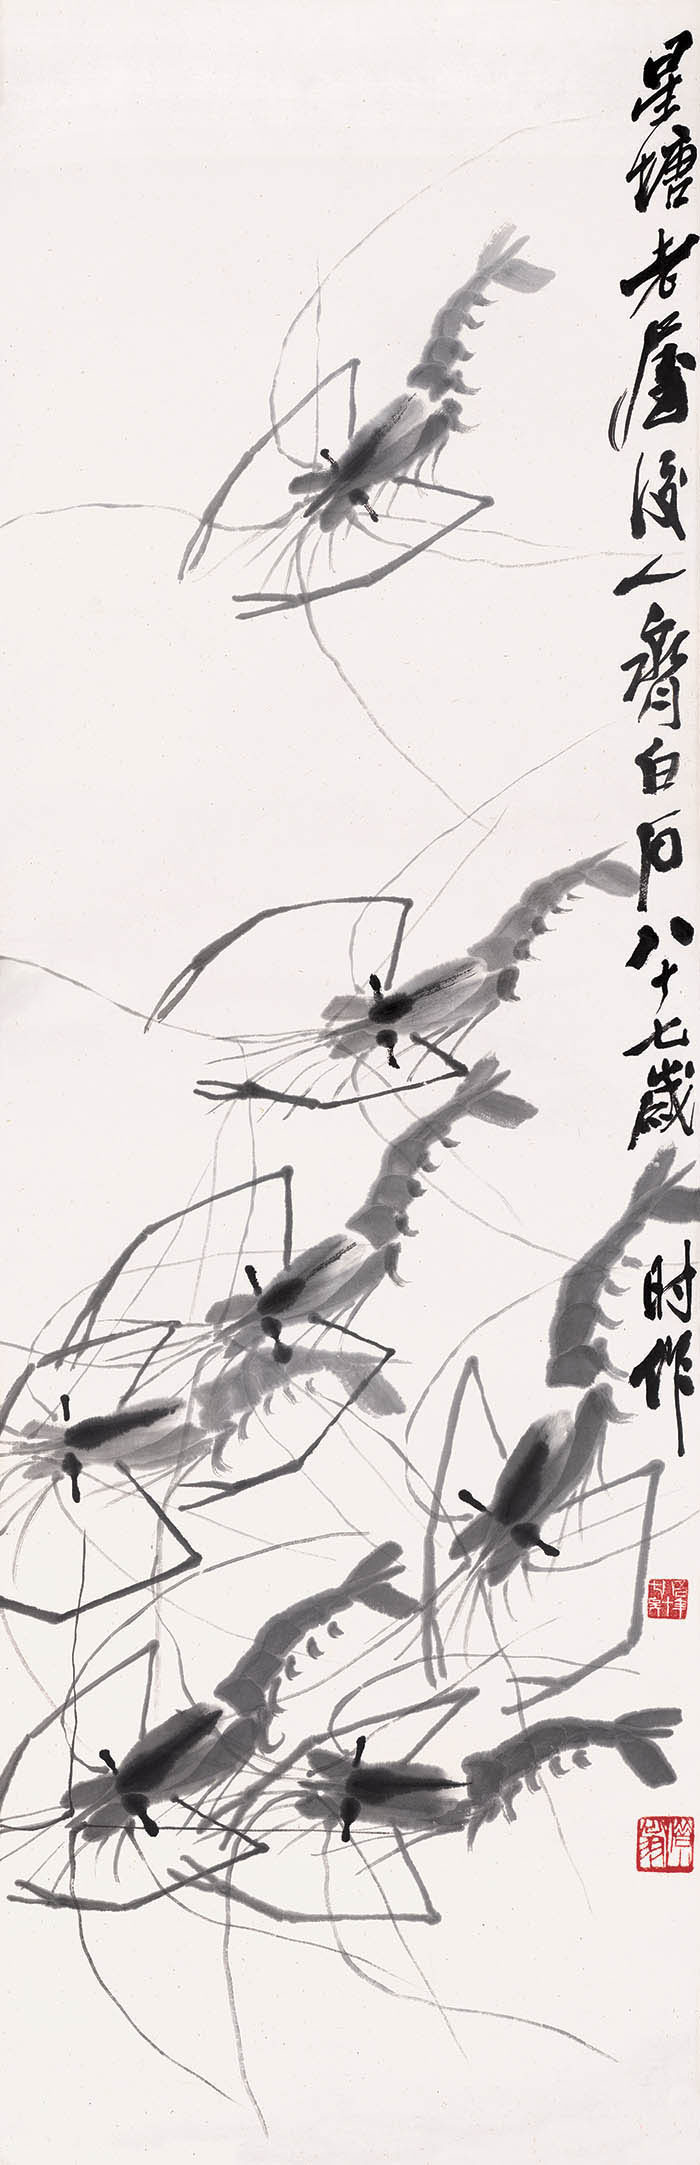 星塘老屋後人齊白石八十七歲
時作